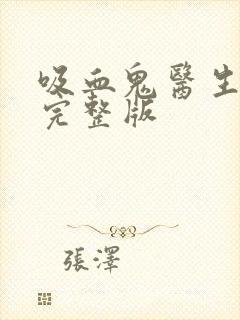 吸血鬼醫生
完整版
張澤